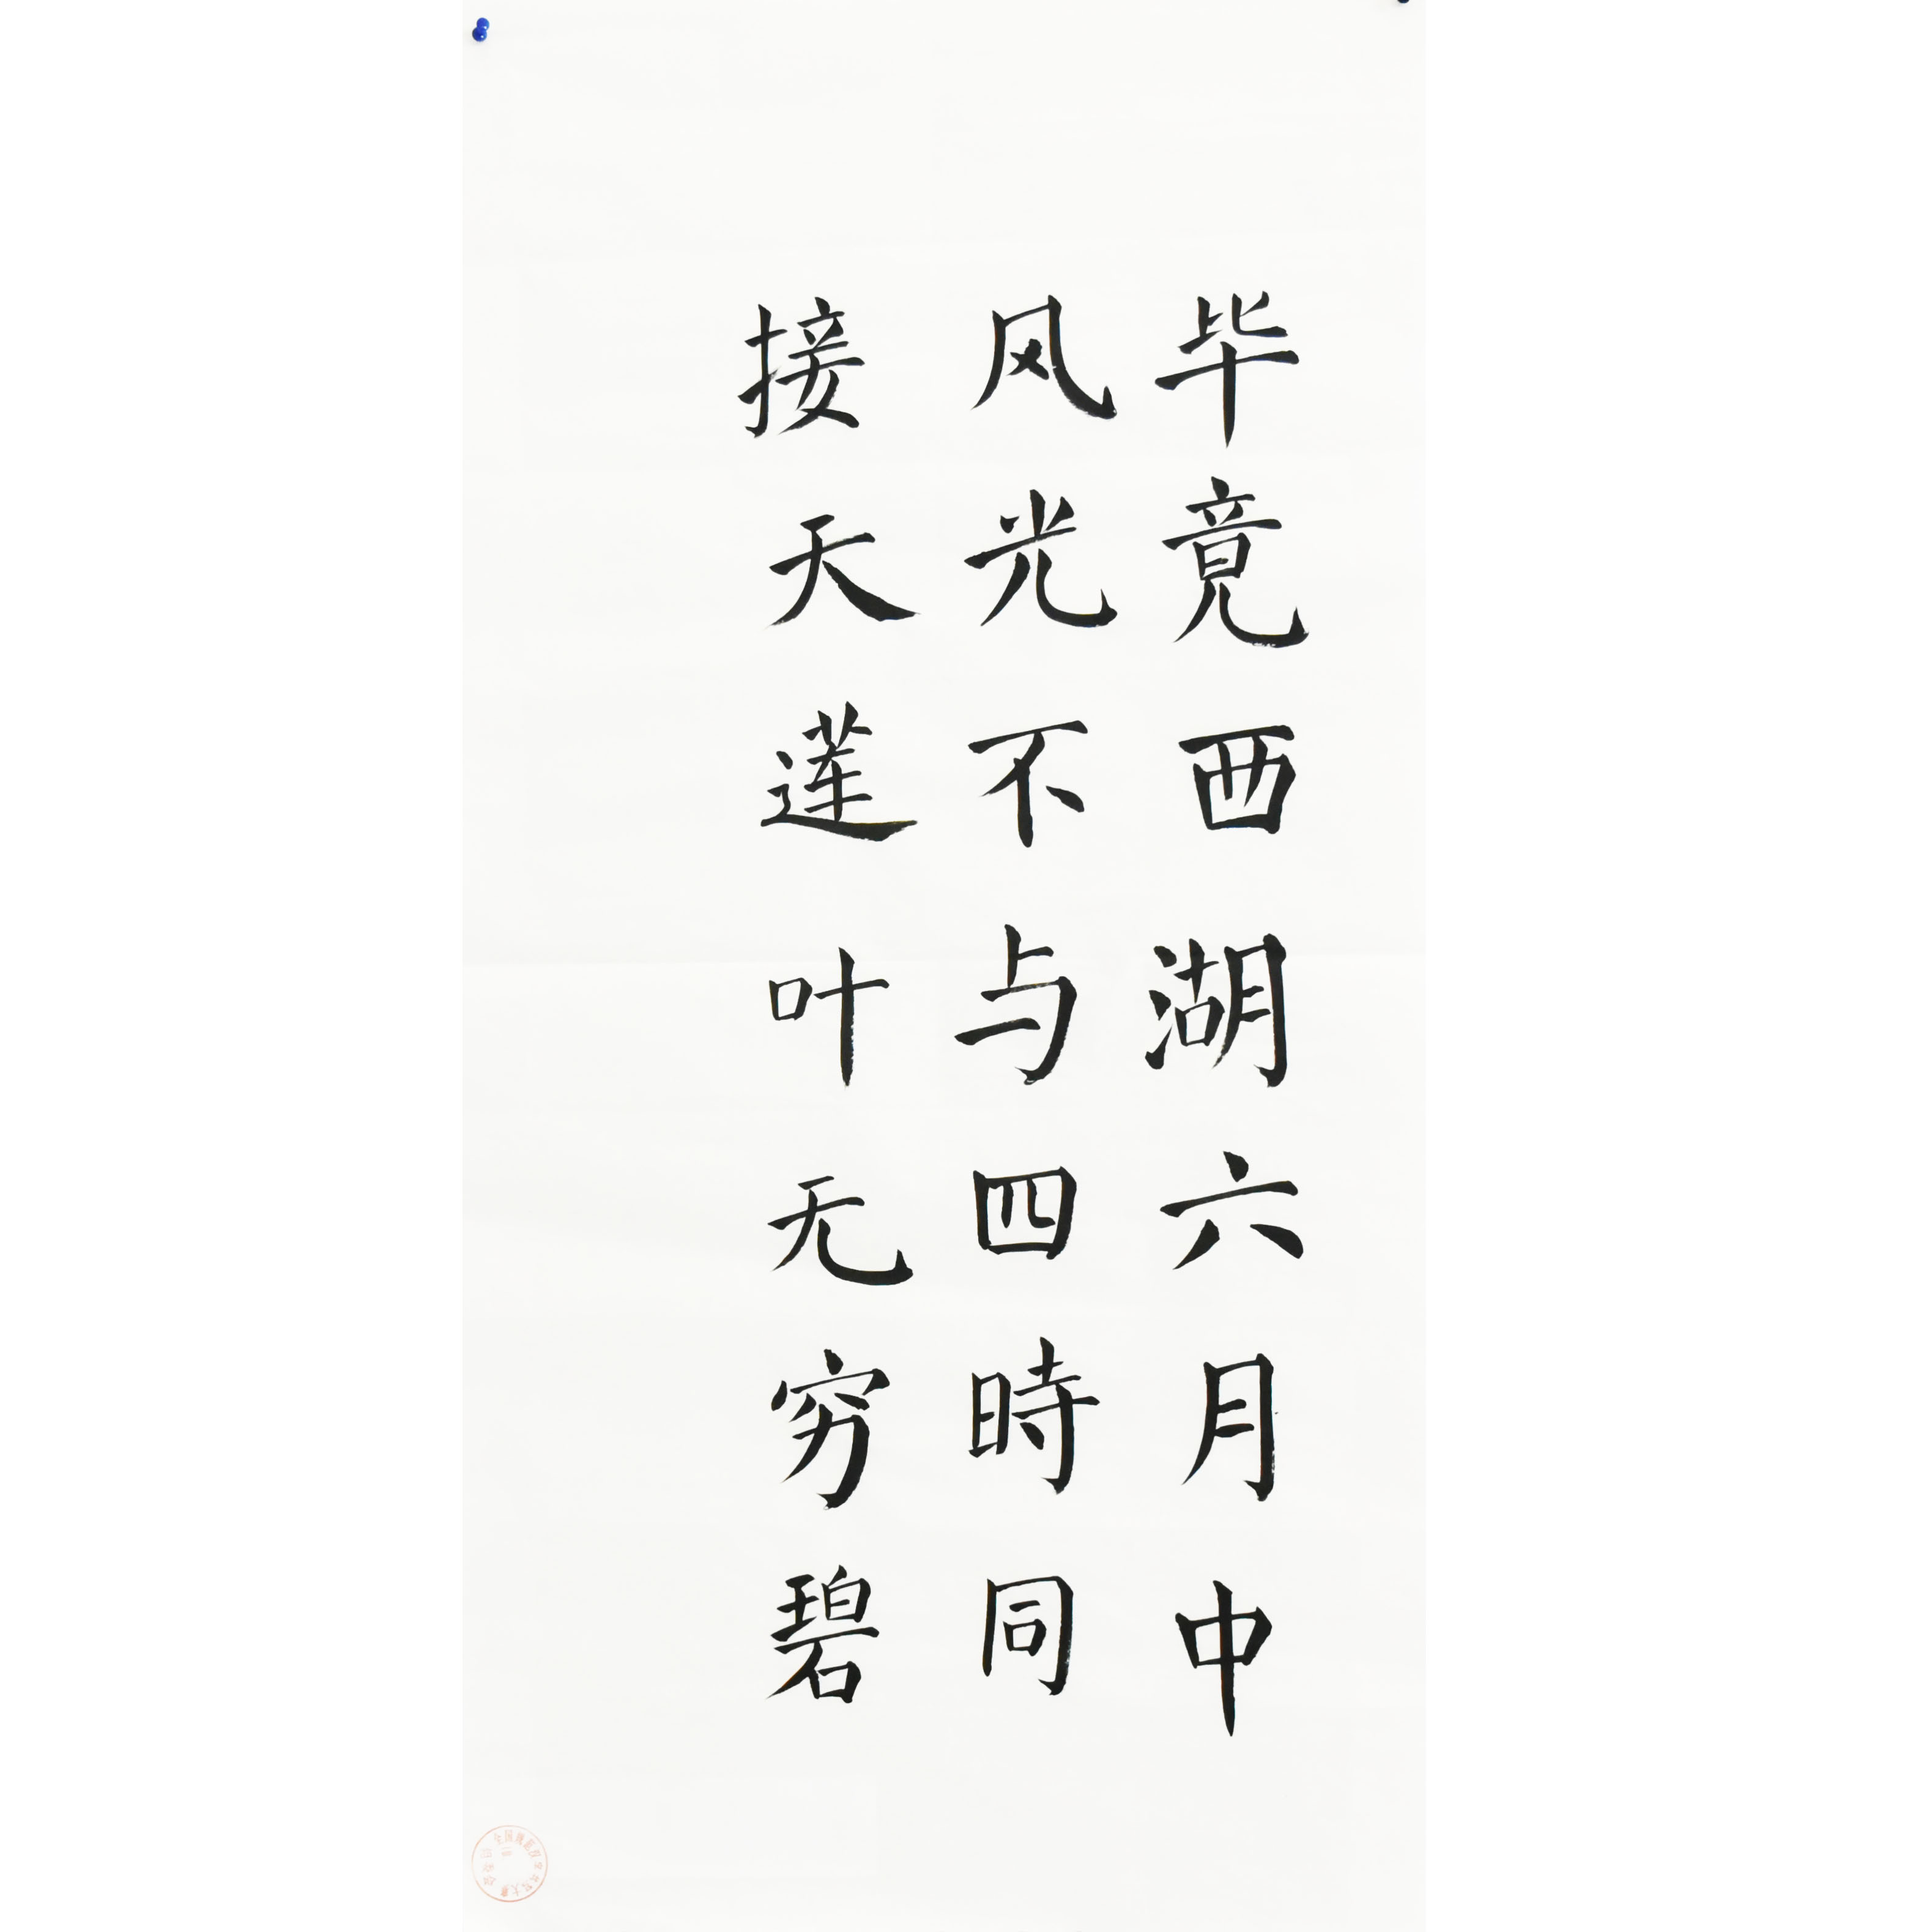 毕竟西湖六月中
风光不与四時同
接天莲叶无穷碧